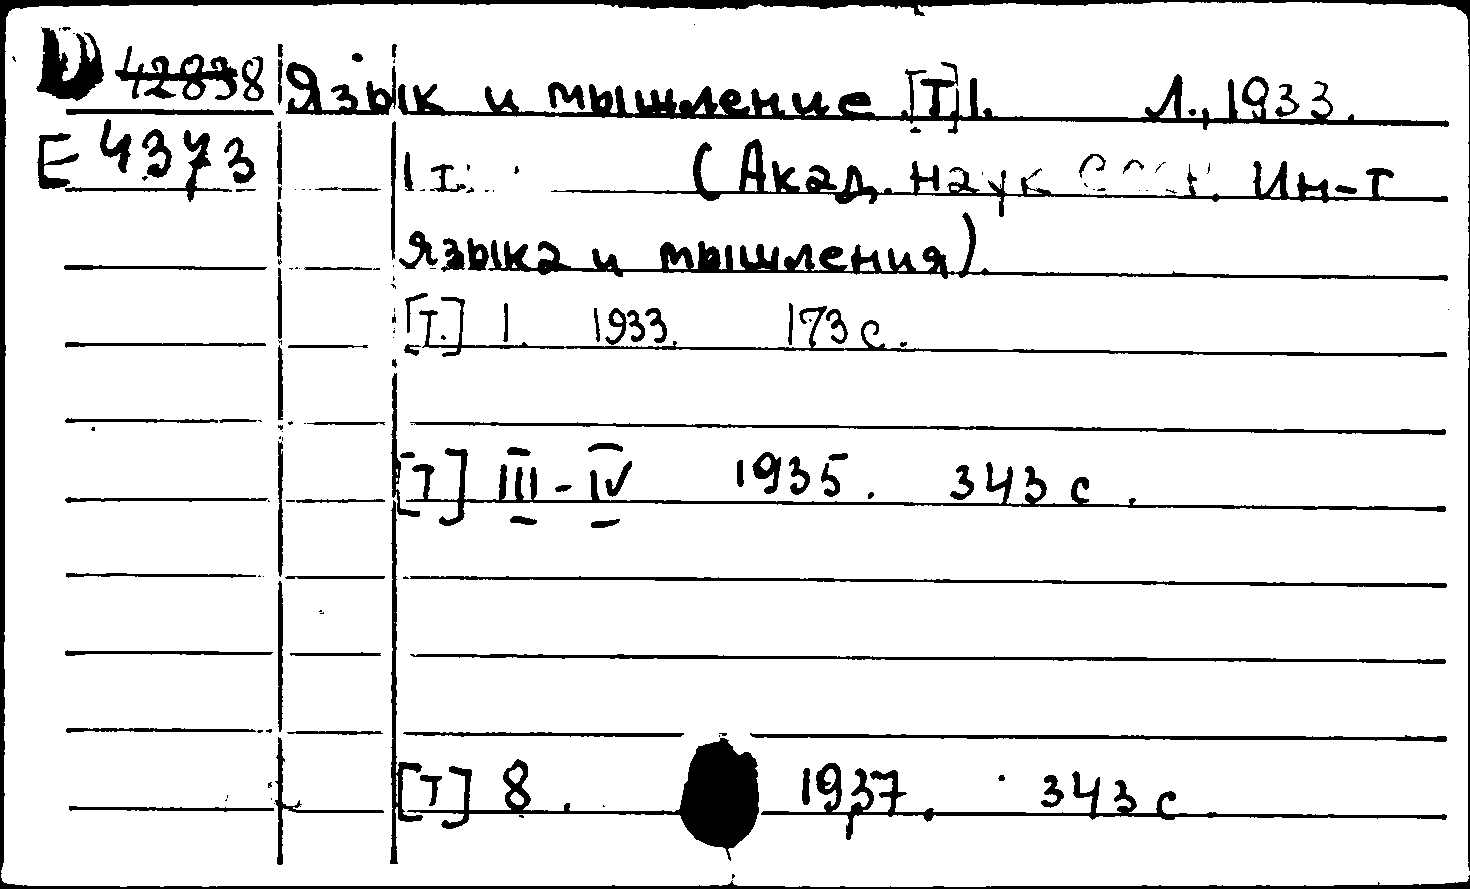 42838 Язык и мышление [Т] 1. Л., 1933.
Е 4373 1 т. (Акад. наук СССР. Ин-т
языка и мышления).
[Т.] 1. 1933. 173 с.
[Т] III-IV 1935. 343 с.
[Т] 8. 1937. 343 с